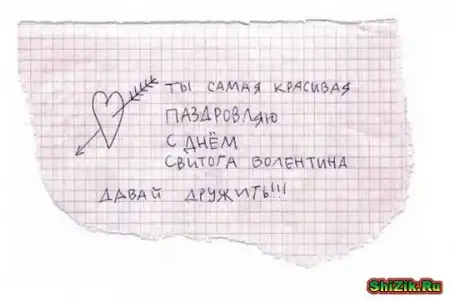 ТЫ САМАЯ КРАСИВАЯ
ПАЗДРОВЛЯЮ
С ДНЁМ
СВИТОГА ВОЛЕНТИНА
ДАВАЙ ДРУЖИТЬ!!!
ShiZik.Ru